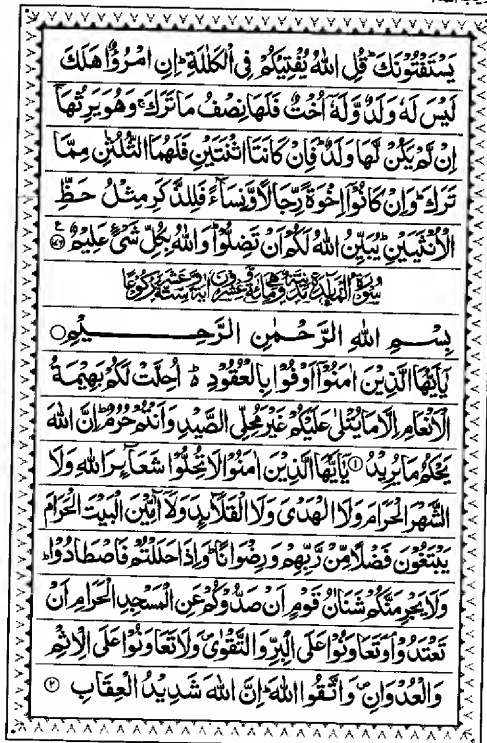 يَسْتَفْتُوْنَكَ ؕ قُلِ اللّٰهُ يُفْتِيْكُمْ فِي الْكَلٰلَةِ ؕ اِنِ امْرُؤٌا هَلَكَ
لَيْسَ لَهٗ وَلَدٌ وَّلَهٗۤ اُخْتٌ فَلَهَا نِصْفُ مَا تَرَكَ ۚ وَهُوَ يَرِثُهَاۤ
اِنْ لَّمْ يَكُنْ لَّهَا وَلَدٌ ؕ فَاِنْ كَانَتَا اثْنَتَيْنِ فَلَهُمَا الثُّلُثٰنِ مِمَّا
تَرَكَ ؕ وَاِنْ كَانُوْۤا اِخْوَةً رِّجَالًا وَّنِسَآءً فَلِلذَّكَرِ مِثْلُ حَظِّ
الْاُنْثَيَيْنِ ؕ يُبَيِّنُ اللّٰهُ لَكُمْ اَنْ تَضِلُّوْا ؕ وَاللّٰهُ بِكُلِّ شَيْءٍ عَلِيْمٌ
سُوْرَةُ الْمَآئِدَةِ مَدَنِيَّةٌ
بِسْمِ اللّٰهِ الرَّحْمٰنِ الرَّحِيْمِ
يٰۤاَيُّهَا الَّذِيْنَ اٰمَنُوْۤا اَوْفُوْا بِالْعُقُوْدِ ؕ اُحِلَّتْ لَكُمْ بَهِيْمَةُ
الْاَنْعَامِ اِلَّا مَا يُتْلٰى عَلَيْكُمْ غَيْرَ مُحِلِّي الصَّيْدِ وَاَنْتُمْ حُرُمٌ ؕ اِنَّ اللّٰهَ
يَحْكُمُ مَا يُرِيْدُ ۝۱ يٰۤاَيُّهَا الَّذِيْنَ اٰمَنُوْا لَا تُحِلُّوْا شَعَآئِرَ اللّٰهِ وَلَا
الشَّهْرَ الْحَرَامَ وَلَا الْهَدْيَ وَلَا الْقَلَآئِدَ وَلَاۤ آٰمِّيْنَ الْبَيْتَ الْحَرَامَ
يَبْتَغُوْنَ فَضْلًا مِّنْ رَّبِّهِمْ وَرِضْوَانًا ؕ وَاِذَا حَلَلْتُمْ فَاصْطَادُوْا ؕ
وَلَا يَجْرِمَنَّكُمْ شَنَاٰنُ قَوْمٍ اَنْ صَدُّوْكُمْ عَنِ الْمَسْجِدِ الْحَرَامِ اَنْ
تَعْتَدُوْا ۘ وَتَعَاوَنُوْا عَلَى الْبِرِّ وَالتَّقْوٰى ۪ وَلَا تَعَاوَنُوْا عَلَى الْاِثْمِ
وَالْعُدْوَانِ ۪ وَاتَّقُوا اللّٰهَ ؕ اِنَّ اللّٰهَ شَدِيْدُ الْعِقَابِ ۝۲